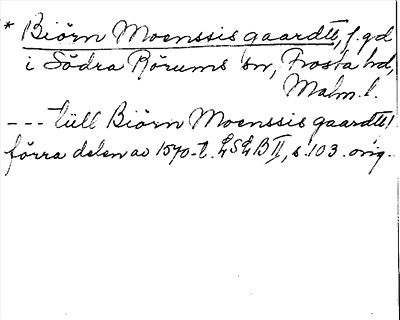 * Biörn Moenssis gaardtt, f. gd
i Södra Rörums sn, Frosta hd,
Malm. l.
--- till Biörn Moenssis gaardtt!
förra delen av 1570-t. LSLB II, s. 103. orig.